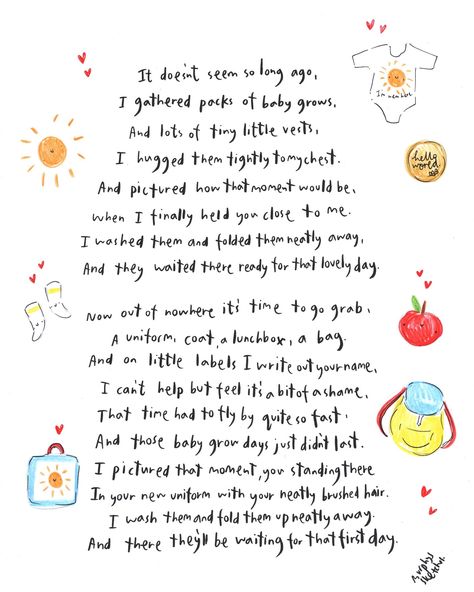 It doesn't seem so long ago,
I gathered packs of baby grows,
And lots of tiny little vests,
I hugged them tightly to my chest.
And pictured how that moment would be,
when I finally held you close to me.
I washed them and folded them neatly away,
And they waited there ready for that lovely day.
Now out of nowhere it's time to go grab,
A uniform, coat, a lunchbox, a bag.
And on little labels I write out your name,
I can't help but feel it's a bit of a shame,
That time had to fly by quite so fast.
And those baby grow days just didn't last.
I pictured that moment, you standing there
In your new uniform with your neatly brushed hair.
I wash them and fold them up neatly away.
And there they'll be waiting for that first day.
I'm new here
hello
world.